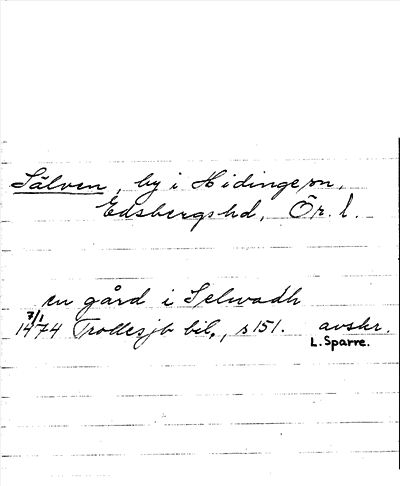 Sälven, by i Hidinge sn,
Edsbergs hd, Ör. l.
en gård i Selwadh
7/1
1474 Trollesjb bil., s 151. avskr.
L. Sparre.